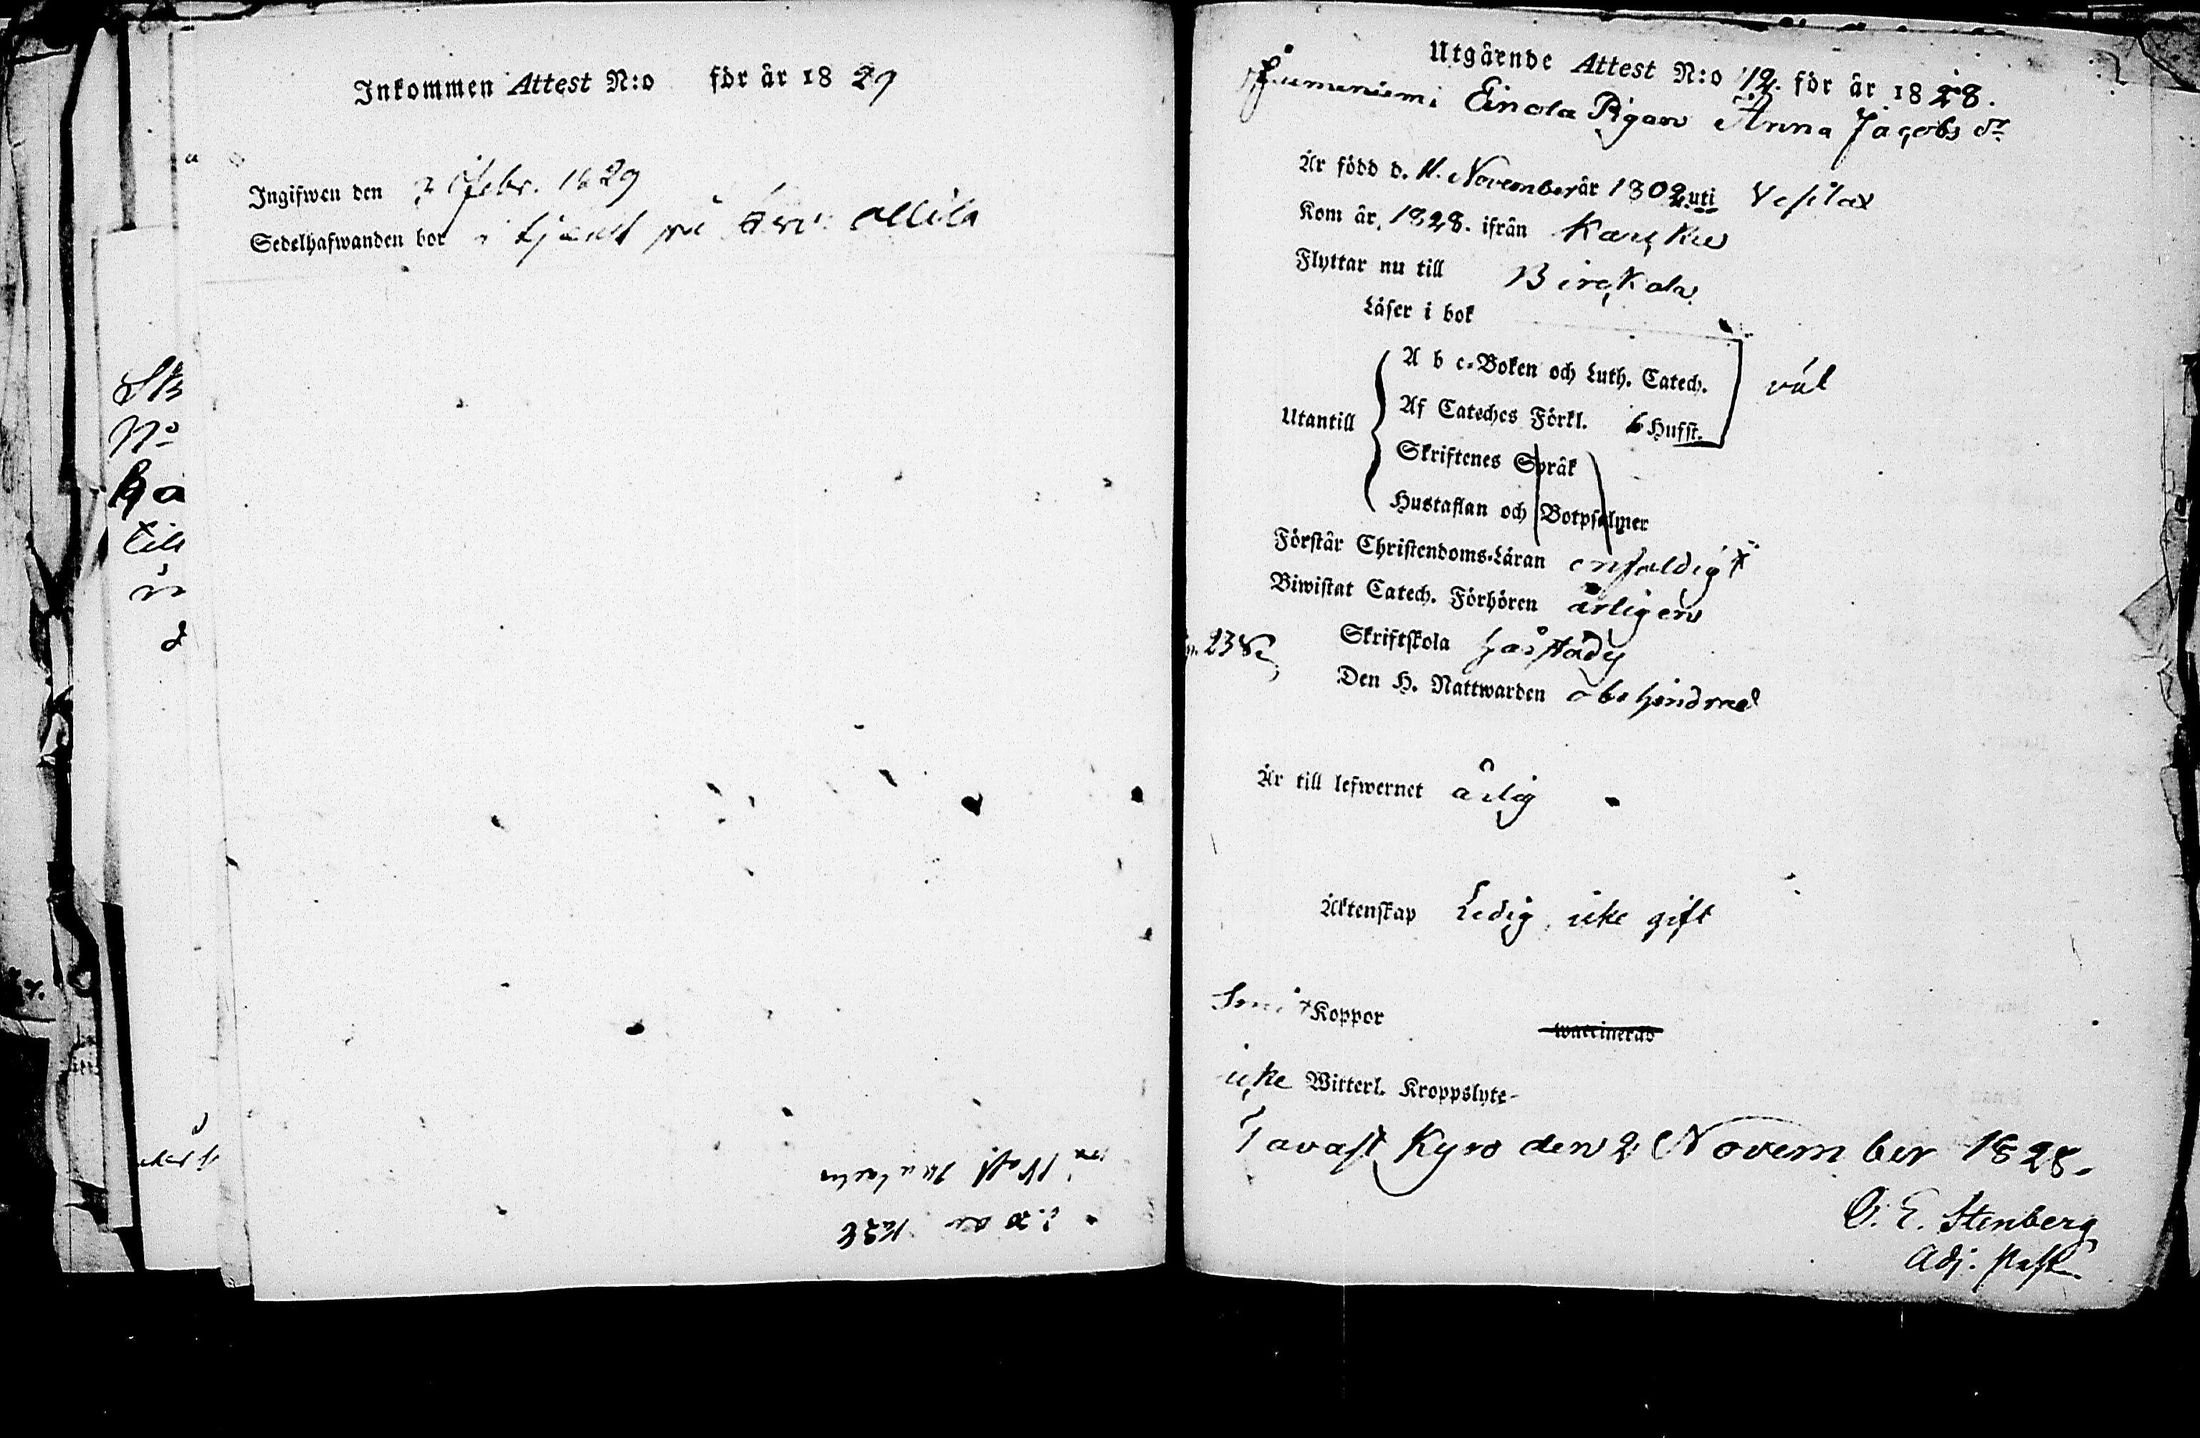 Inkommen Attest N:o för år 1829
Ingifwen den Febr. 1829
Sedelhafwanden bor i tjenst på
Utgående Attest N:o 12. för år 1828.
Einola Pigan Anna Jacobs dr
Är född d. 11. November år 1802 uti Vesilax
Kom år 1828. ifrån Karkku
Flyttar nu till Birkkala
Läser i bok
Utantill
A b c-Boken och Luth. Catech. väl
Af Cateches Förkl. 6 Hufst.
Skriftenes Språk
Hustaflan och Botpsalmer
Förstår Christendoms-Läran enfaldigt
Biwistat Catech. Förhören årligen
238 Skriftskola
Den H. Nattwarden obehindrad
Är till lefwernet ärlig
Äktenskap Ledig, icke gift
Koppor waccinerad
icke Witterl. Kroppslyte
Tavast Kyro den 2 November 1828.
O. E. Stenberg
Adj. Past.
Sk
No
till